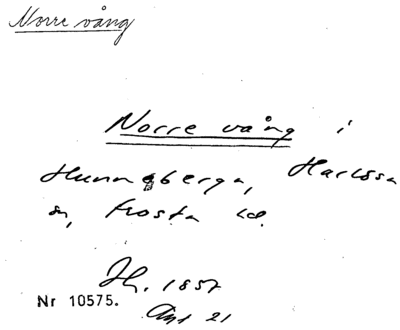 Norre vång
Norre vång i
Hunneberga, Harlösa
sn, Frosta hd.
H. 1857
Nr 10575.
Akt 21